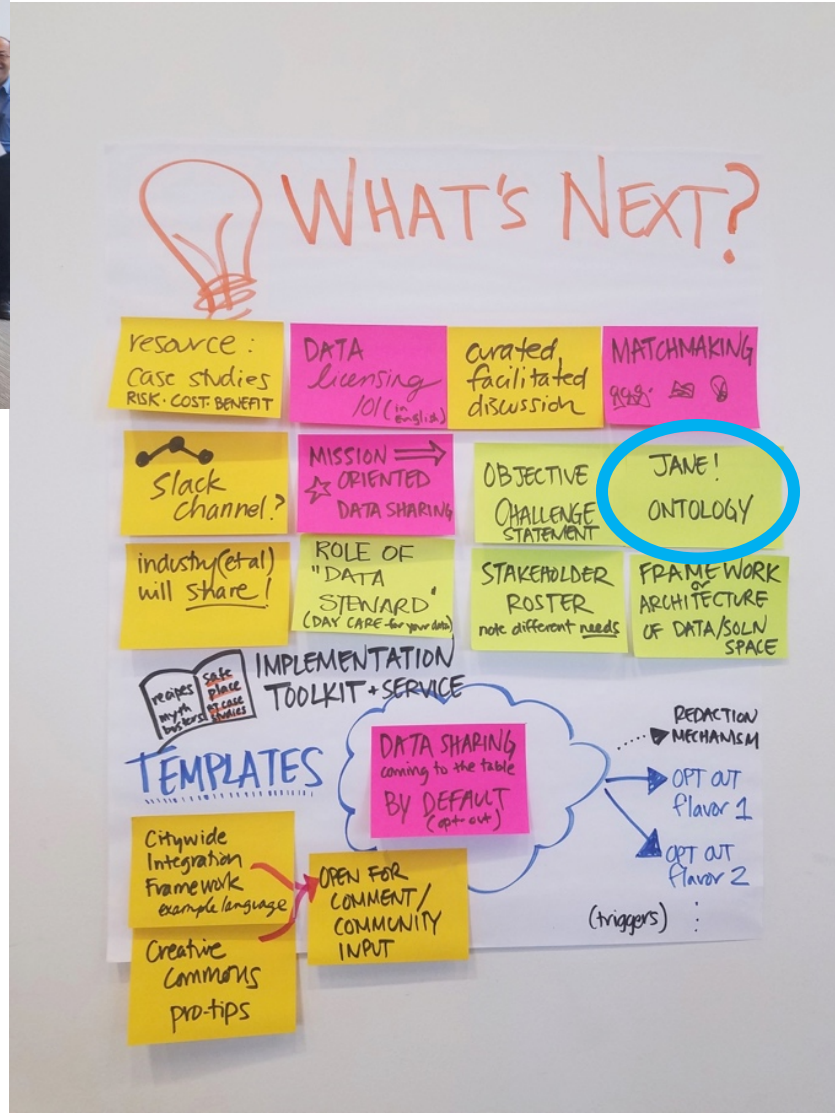 WHAT'S NEXT?
resource:
case studies
RISK·COST·BENEFIT
DATA
licensing
101 (in english)
curated,
facilitated
discussion
MATCHMAKING
Slack
channel?
MISSION
ORIENTED
DATA SHARING
OBJECTIVE
CHALLENGE
STATEMENT
JANE!
ONTOLOGY
industry (et al)
will share!
ROLE OF
"DATA
STEWARD"
(DAY CARE for your data)
STAKEHOLDER
ROSTER
note different needs
FRAMEWORK
or
ARCHITECTURE
OF DATA/SOLN
SPACE
recipes
myth
busters
safe
place
case
studies
IMPLEMENTATION
TOOLKIT + SERVICE
TEMPLATES
DATA SHARING
coming to the table
BY DEFAULT
(opt-out)
REDACTION
MECHANISM
OPT OUT
flavor 1
OPT OUT
flavor 2
(triggers)
Citywide
Integration
Framework
example language
OPEN FOR
COMMENT/
COMMUNITY
INPUT
Creative
Commons
pro-tips